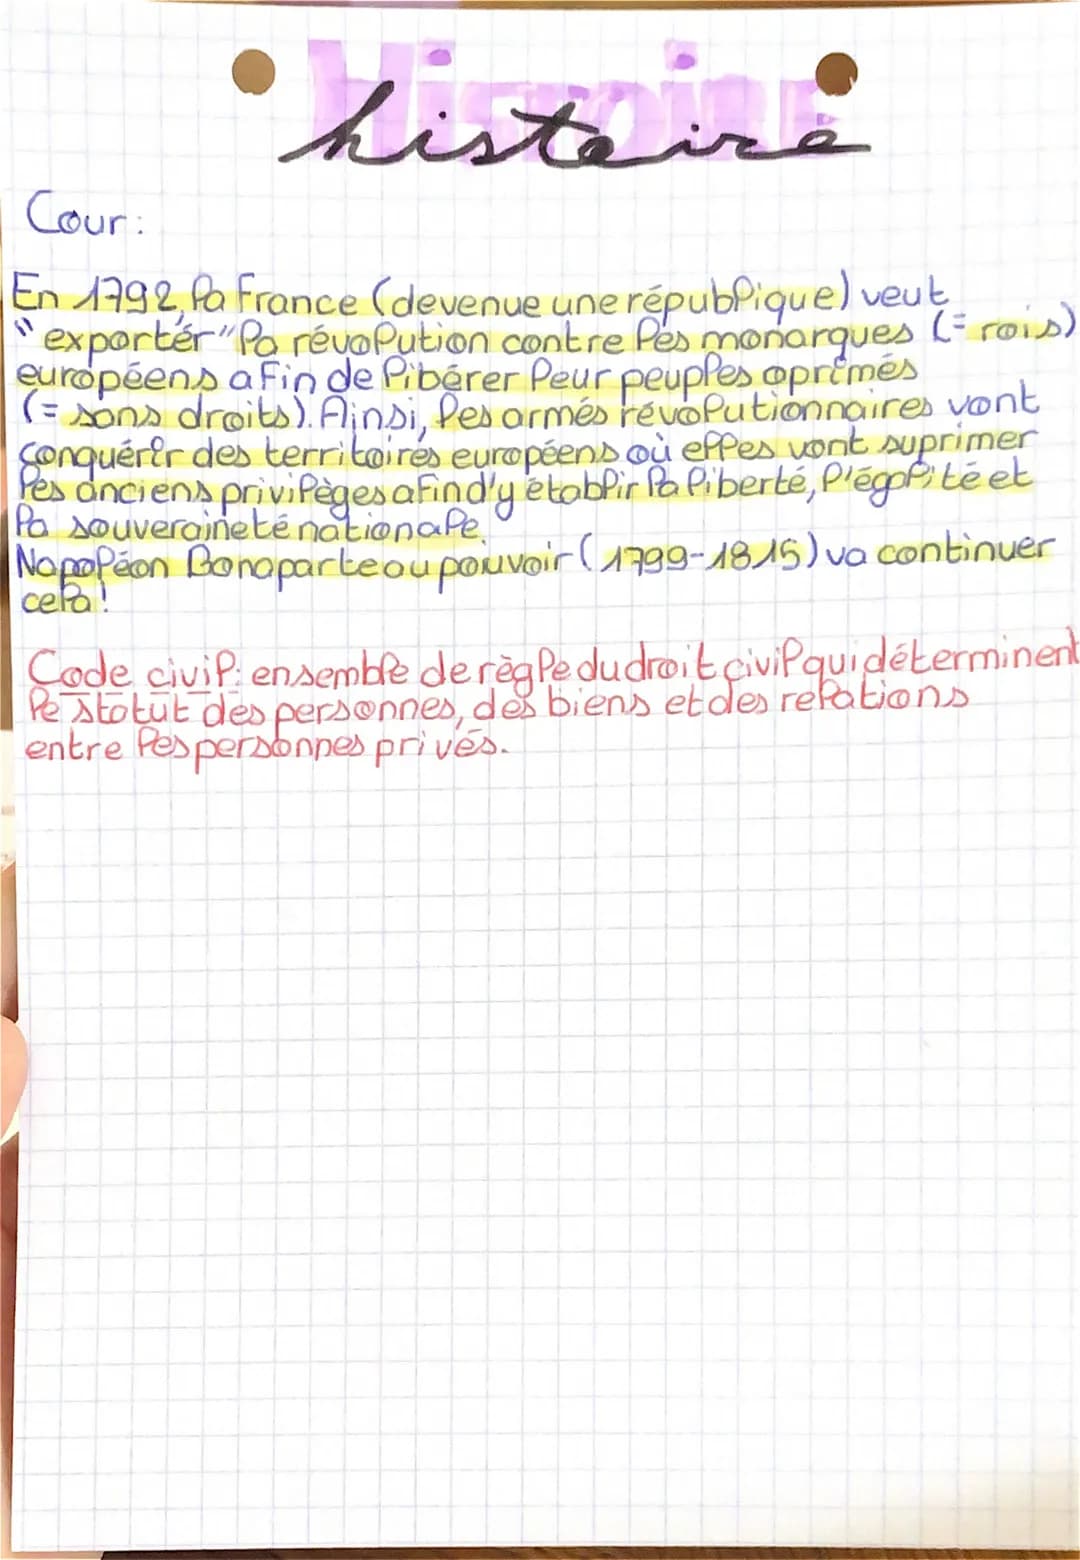 Histoire
histoire
Cour:
En 1792, la France (devenue une république) veut
"exporter" la révolution contre les monarques (= rois)
européens afin de libérer leur peuples oprimés
(= sans droits). Ainsi, les armés révolutionnaires vont
conquérir des territoires européens où elles vont suprimer
les anciens privilèges afin d'y établir la liberté, l'égalité et
la souveraineté nationale.
Napoléon Bonaparte au pouvoir (1799-1815) va continuer
cela!
Code civil: ensemble de règle du droit civil qui déterminent
le statut des personnes, des biens et des relations
entre les personnes privés.